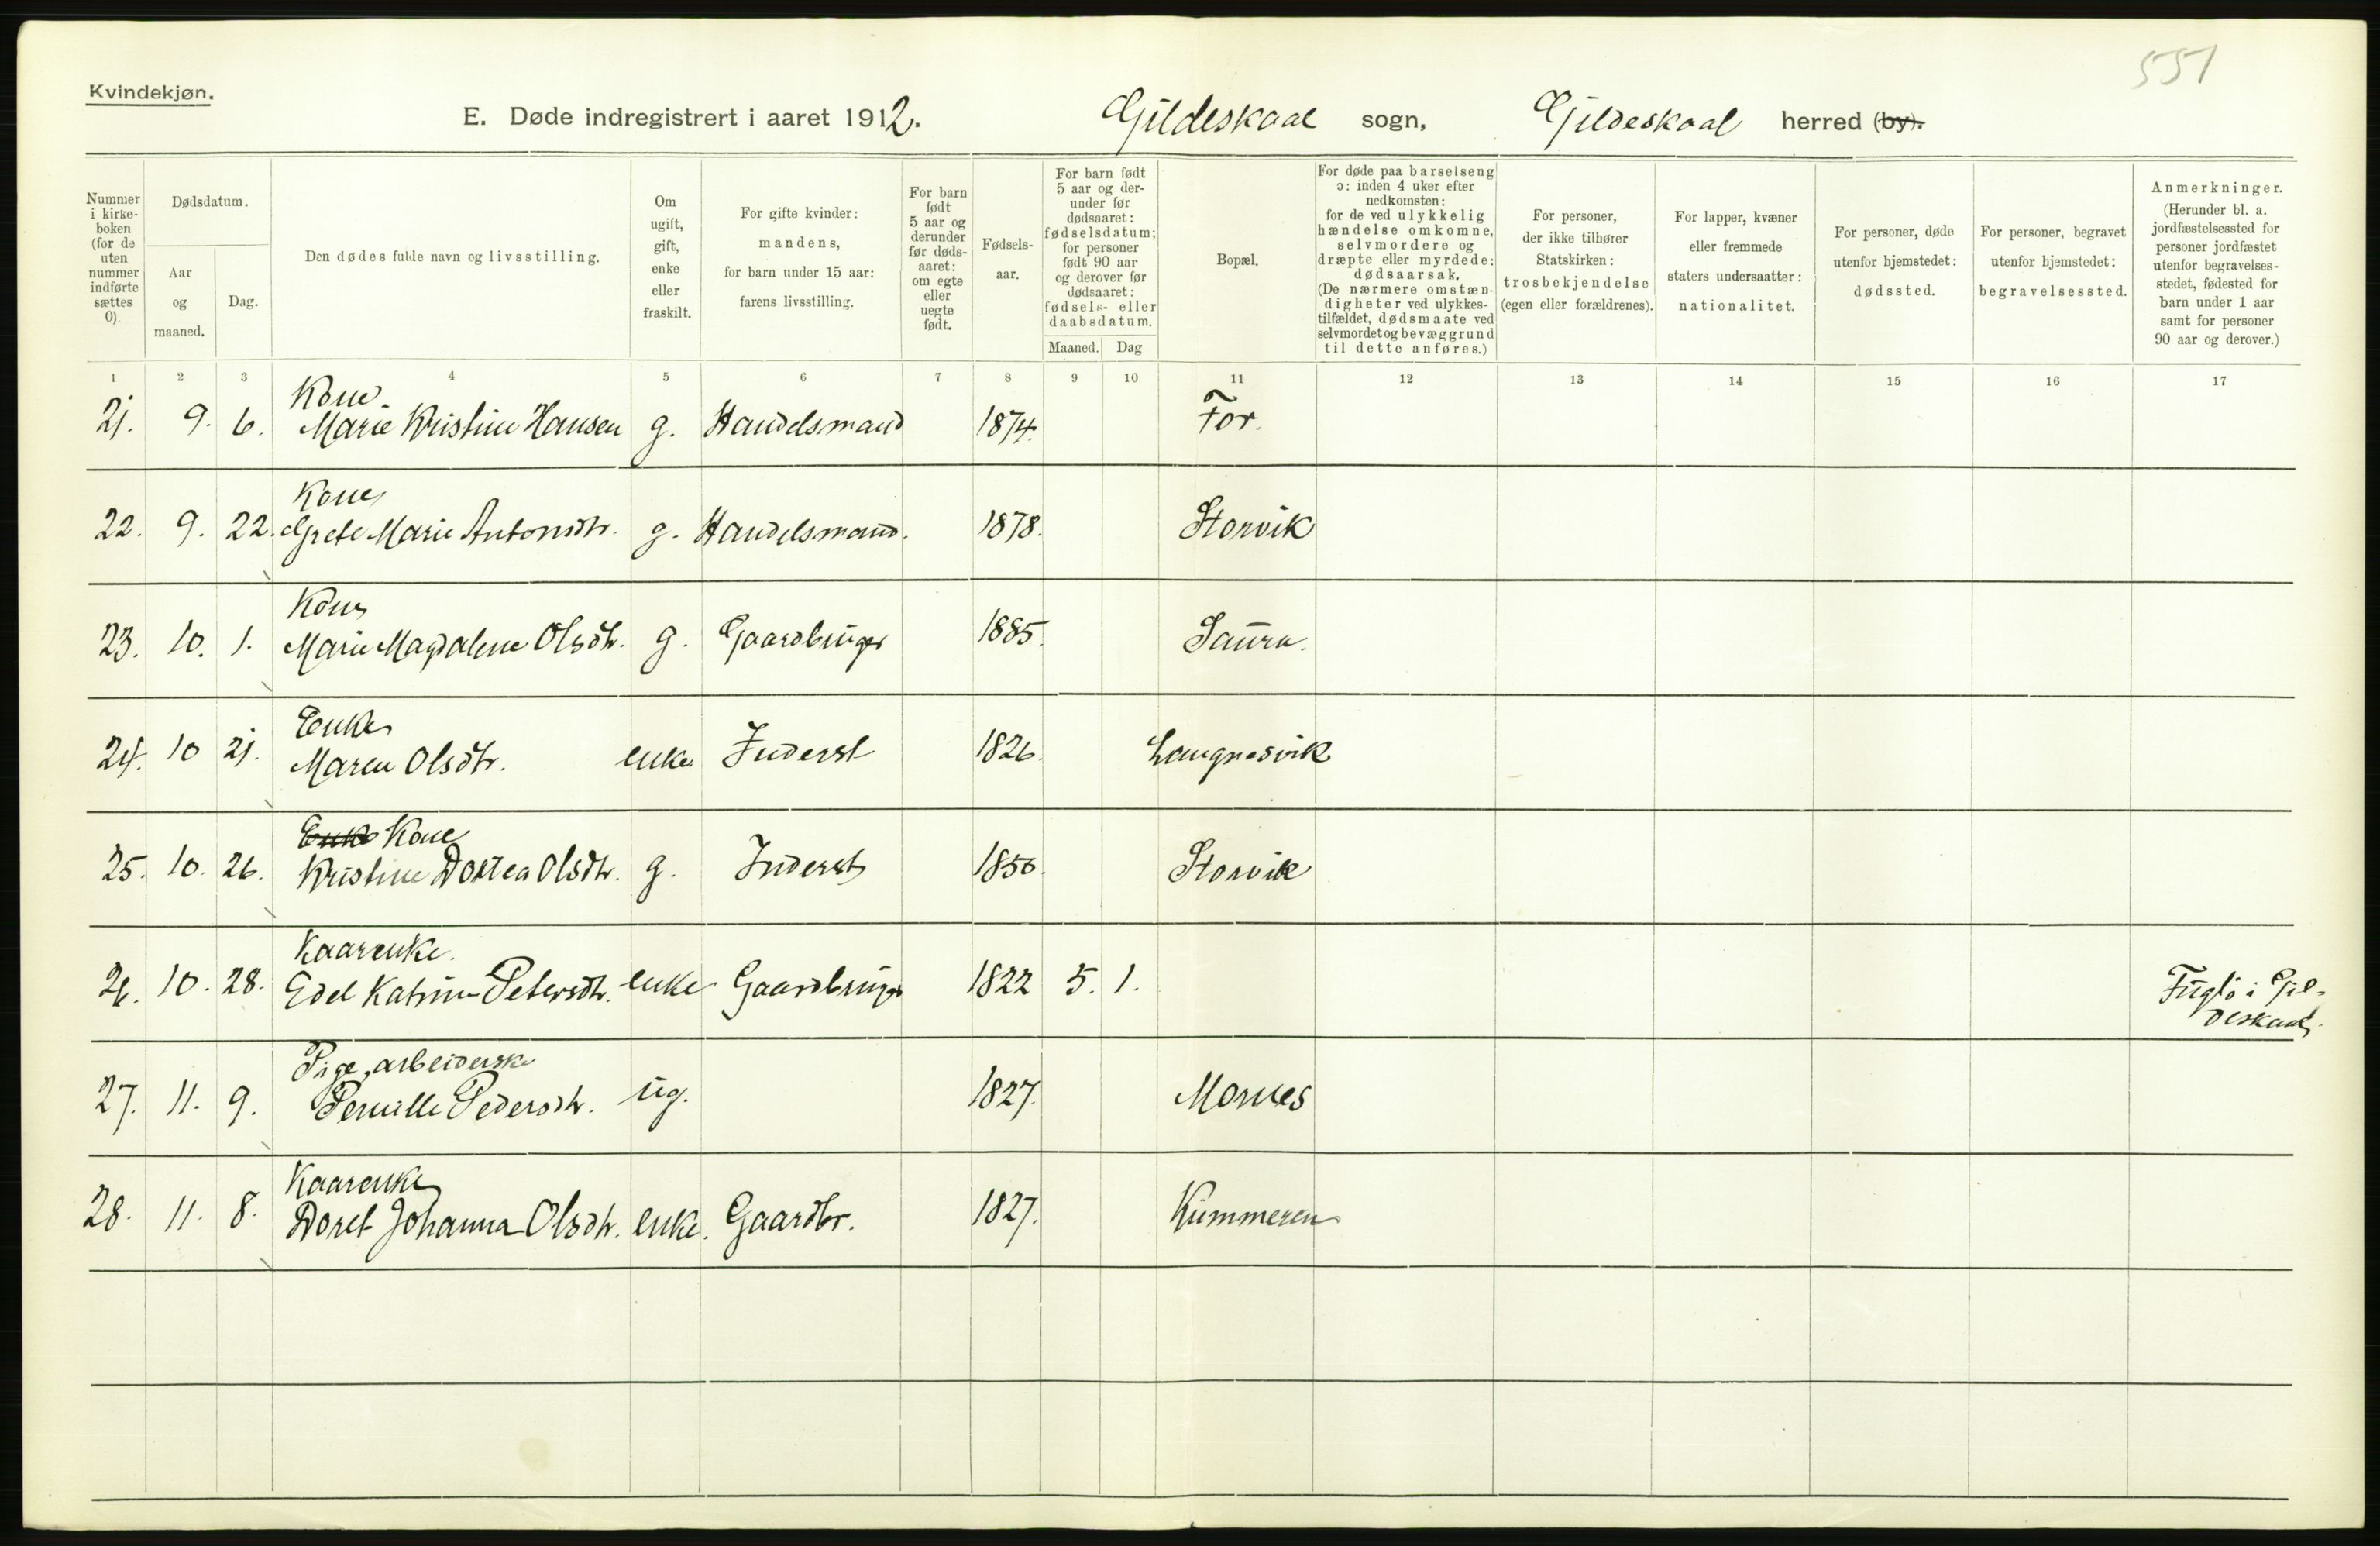 551
Kvindekjøn.
E. Døde indregistrert i aaret 1912. Gildeskaal sogn, Gildeskaal herred (by).
Nummer i kirke-boken (for de uten nummer indførte sættes 0).
Dødsdatum.
Aar og maaned.
Dag.
Den dødes fulde navn og livsstilling.
Om ugift, gift, enke eller fraskilt.
For gifte kvinder: mandens, for barn under 15 aar: farens livsstilling.
For barn født 5 aar og derunder før døds-aaret: om egte eller uegte født.
Fødsels-aar.
For barn født 5 aar og der-under før dødsaaret: fødselsdatum; for personer født 90 aar og derover før dødsaaret: fødsels- eller daabsdatum.
Maaned. Dag
Bopæl.
For døde paa barselseng ɔ: inden 4 uker efter nedkomsten: for de ved ulykkelig hændelse omkomne, selvmordere og dræpte eller myrdede: dødsaarsak. (De nærmere omstæn-digheter ved ulykkes-tilfældet, dødsmaate ved selvmordet og bevæggrund til dette anføres.)
For personer, der ikke tilhører Statskirken: trosbekjendelse (egen eller forældrenes).
For lapper, kvæner eller fremmede staters undersaatter: nationalitet.
For personer, døde utenfor hjemstedet: dødssted.
For personer, begravet utenfor hjemstedet: begravelsessted.
Anmerkninger. (Herunder bl. a. jordfæstelsessted for personer jordfæstet utenfor begravelses-stedet, fødested for barn under 1 aar samt for personer 90 aar og derover.)
1 2 3 4 5 6 7 8 9 10 11 12 13 14 15 16 17
Kone
21. 9. 6. Marie Kristine Hansen g. Handelsmand 1874. For.
Kone
22. 9. 22. Grete Marie Antonsdtr. g. Handelsmand. 1878. Storvik
Kone
23. 10. 1. Marie Magdalene Olsdtr. g. Gaardbruger 1885. Saura.
Enke
24. 10 21. Maren Olsdtr. enke Inderst 1826. Langnesvik
Enke Kone
25. 10. 26. Kristine Dortea Olsdtr. g. Inderst 1850. Storvik
Kaarenke.
26. 10. 28. Edel Katrine Petersdtr. enke Gaardbruger 1822 5. 1. Fuglø i Gil-
deskaal.
Pige, arbeiderske
27. 11. 9. Pernille Pedersdtr. ug. 1827. Mornes
Kaarenke
28. 11. 8. Doret Johanna Olsdtr. enke. Gaardbr. 1827. Kummeren